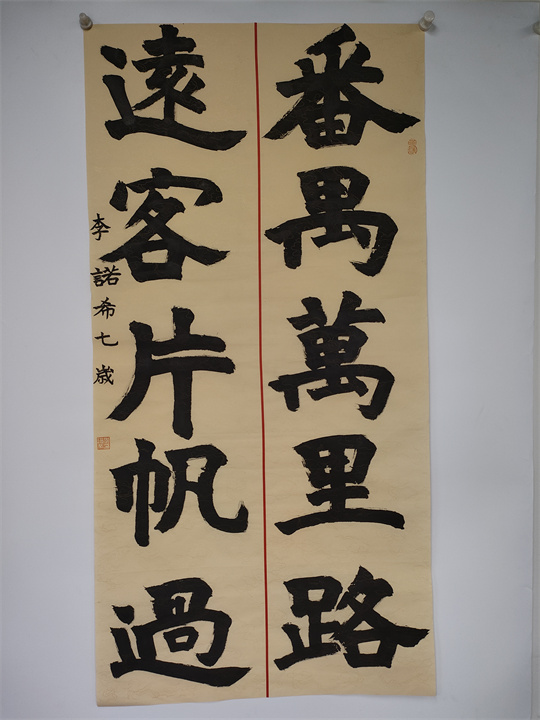 番禺萬里路
遠客片帆過
李諾希七歲